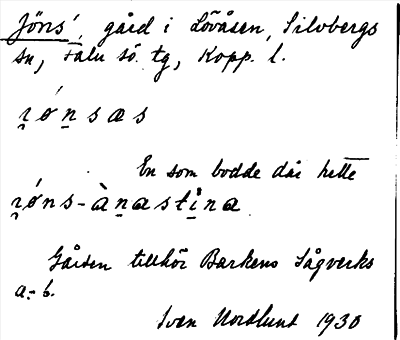 Jöns', gård i Lövåsen, Silvbergs
sn, Falu sö. tg, Kopp. l.
ɪ̯ǿn̯sas
En som bodde där hette
ɪ̯ǿns-àn̯astɪn̯a
Gården tillhör Barkens Sågverks
a.-b.
Sven Nordlund 1930